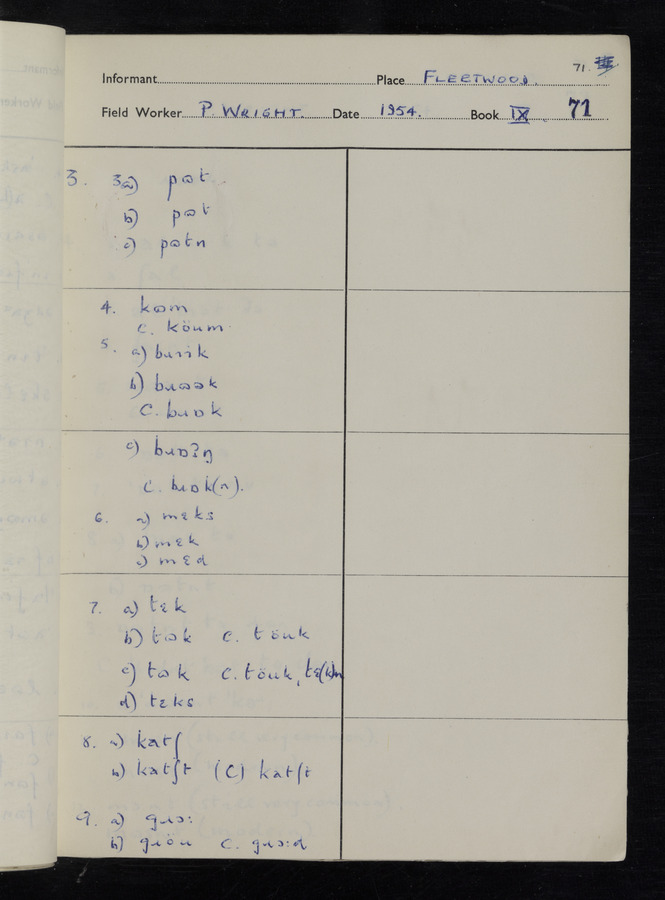 71.
Informant
Place FLEETWOOD.
Field Worker P. WRIGHT. Date 1954. Book IX. 71
3. 3a) pɷt
b) pɷt
c) pɷtn
4. kɷm
C. köum
5. a)
b)
C. bɹɒk
c) bɹɒʔŋ
C. bɹɒk(n).
6. a) mɛks
b) mɛk
c) mɛd
7. a) tɛk
b) tɷk C. töuk
c) tɷk C. töuk,
d) tɛks
8. a) katʃ
b) katʃt (C) katʃt
9. a) gɹɔ:
b) C. gɹɔ:d